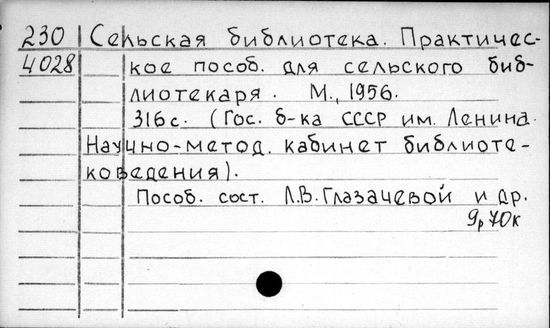 230 Сельская библиотека. Практичес-
4028 кое пособ. для сельского биб-
лиотекаря. М., 1956.
316 с. (Гос. б-ка СССР им. Ленина.
Научно-метод. кабинет библиоте-
коведения).
Пособ. сост. Л.В. Глазачевой и др.
9р70к